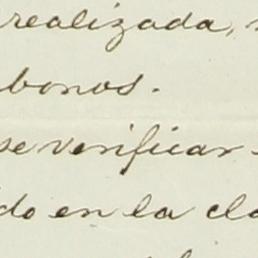 realizada,
bonos.
se verificar
do en la cla